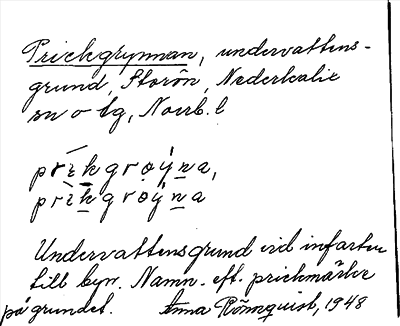 Prickgrynnan, undervattens-
grund, Storön, Nederkalix
sn o tg, Norrb. l
prìkgrøýna,
prìkgrøýna
Undervattensgrund vid infarten
till byn. Namn. eft. prickmärke
på grundet. Anna Rönnquist, 1948